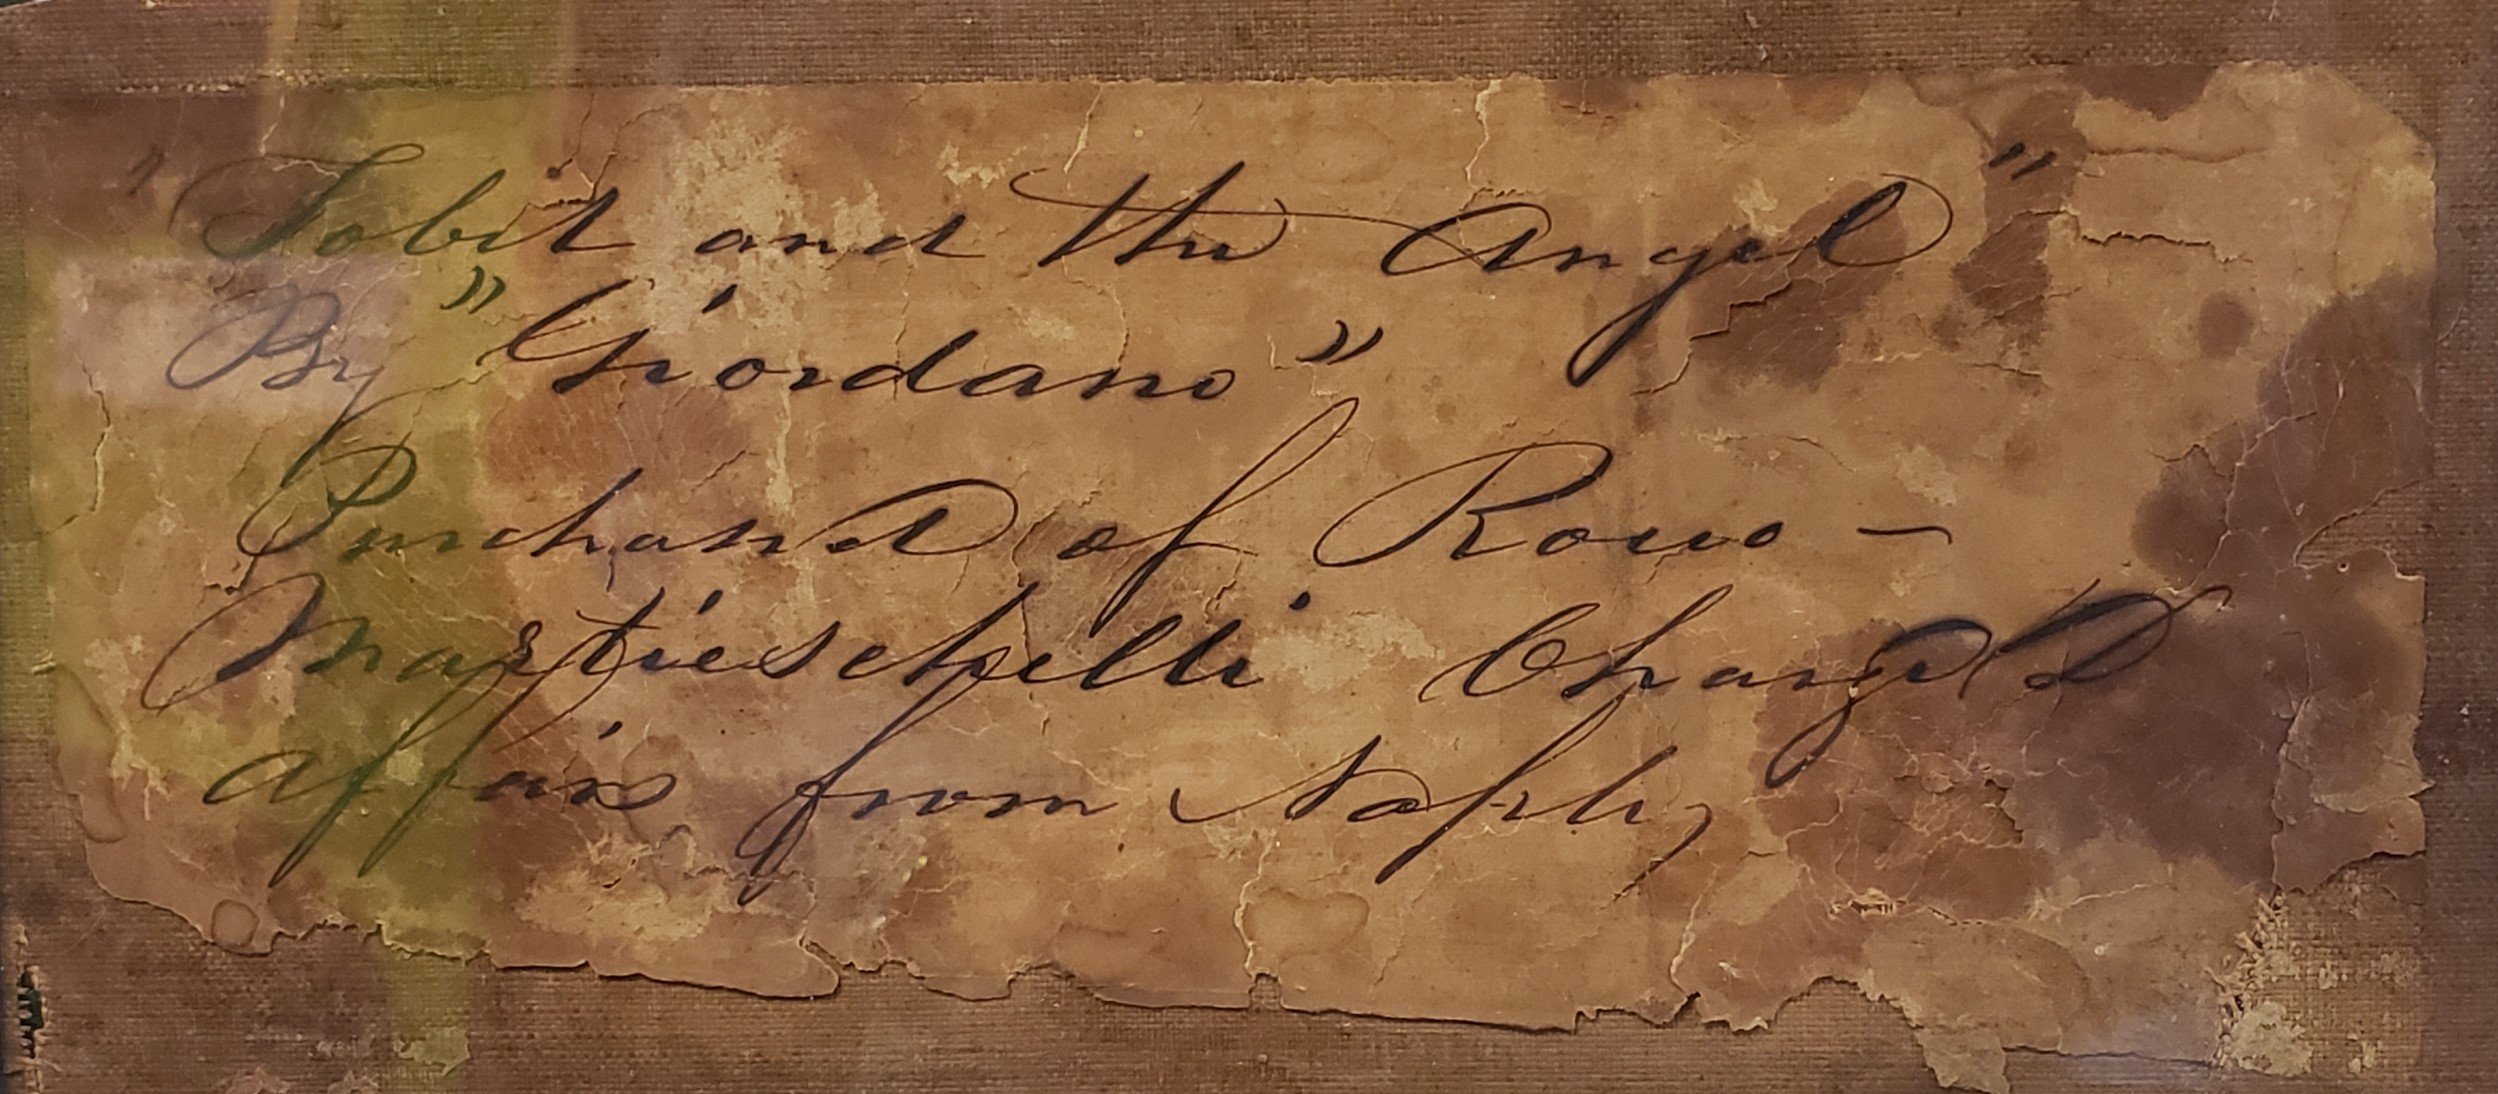 "Tobit and the Angel"
By "Giordano"
Purchased of Rocco -
Martuscelli Charge D
affairs from Naples